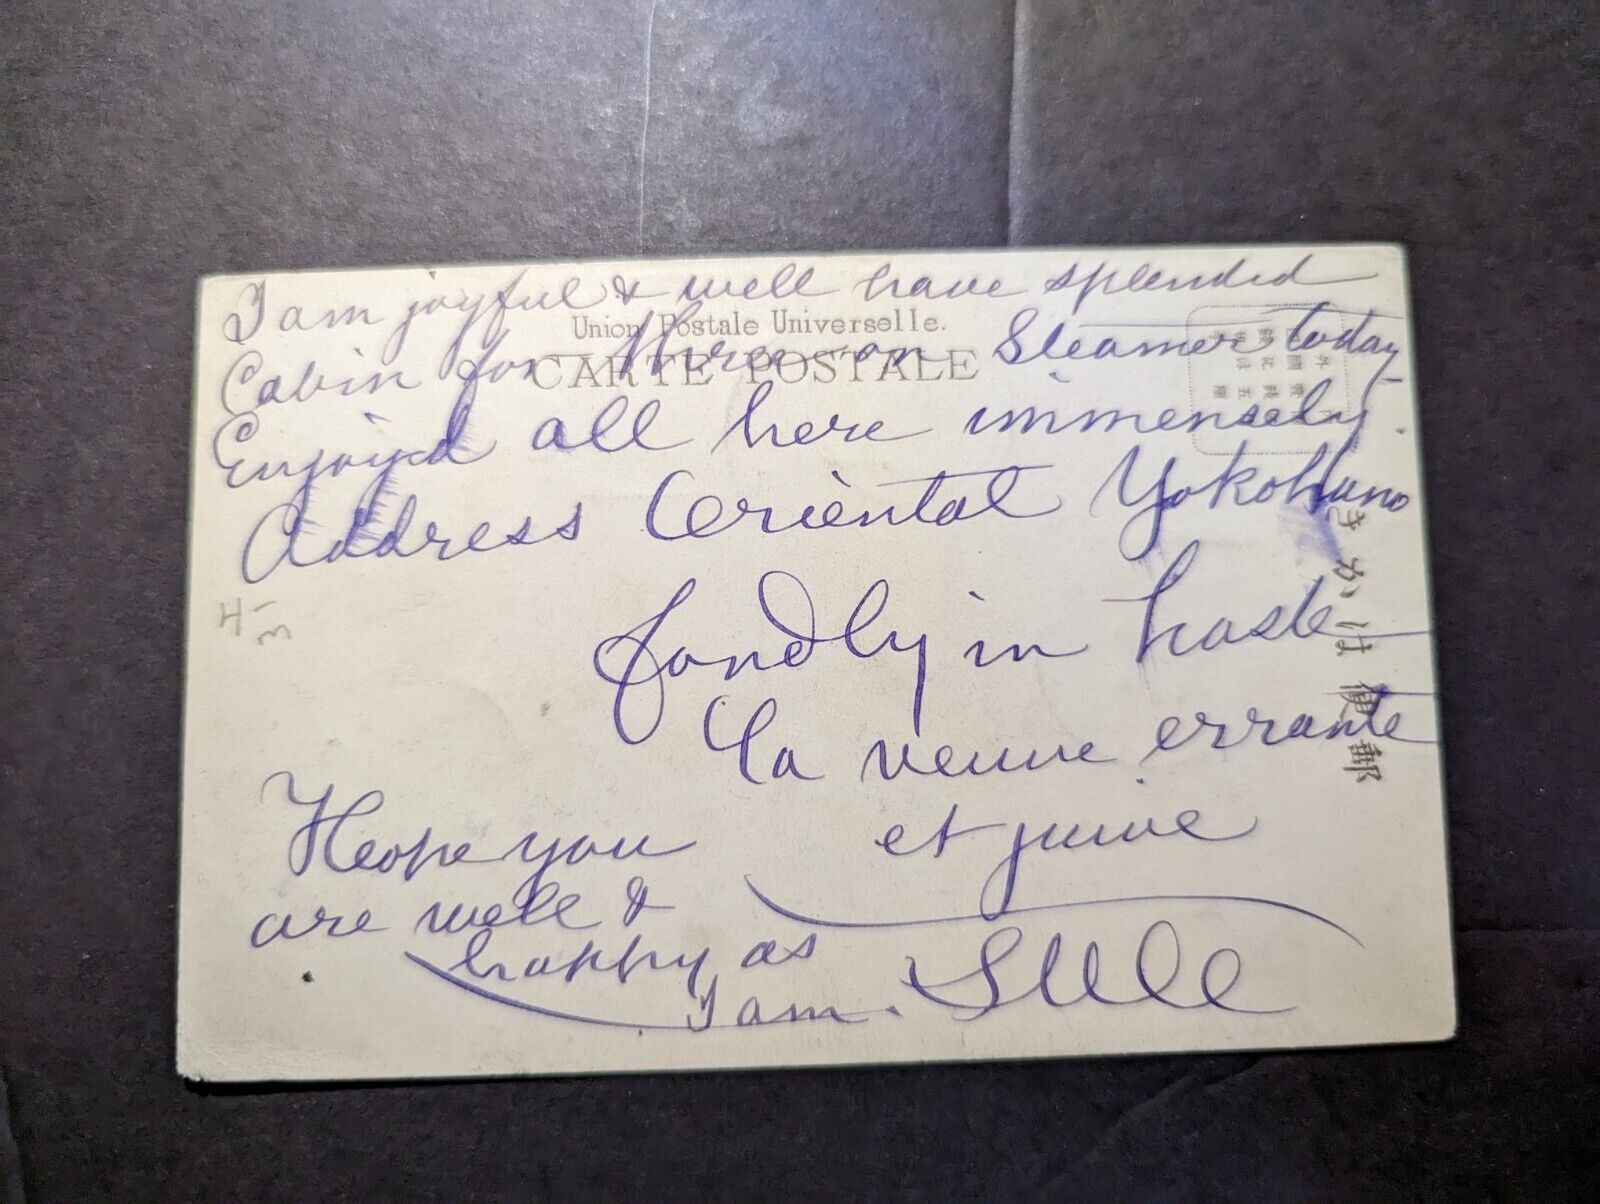 I am joyful & well have splendid
Union Postale Universelle.
Cabin for three on Steamer today
CARTE POSTALE
Enjoy'd all here immensely.
Address Oriental Yokohama
fondly in haste
la veuve errante
et juive
Hope you
are well &
happy as
I am.
きかは便郵